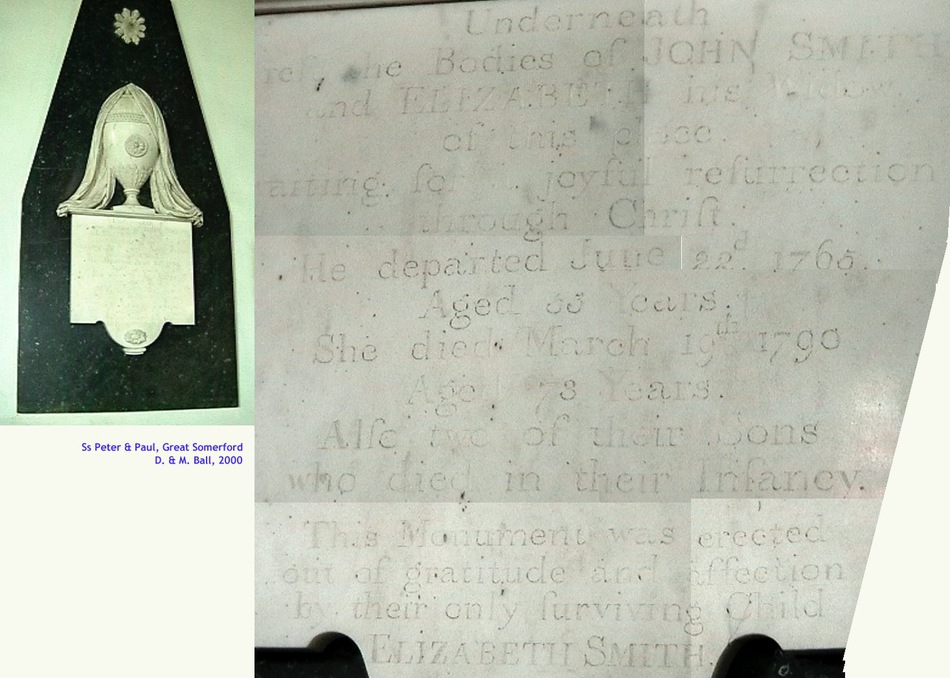 Underneath
reſt the Bodies of JOHN SMITH
and ELIZABETH his Widow
of this place
aiting for joyful reſurrection
through Chriſt.
He departed June 22d 1768.
Aged Years.
She died March 19th 1790
Aged 73 Years.
Alſo two of their Sons
who died in their Infancy.
This Monument was erected
out of gratitude and affection
by their only ſurviving Child
ELIZABETH SMITH.
Ss Peter & Paul, Great Somerford
D. & M. Ball, 2000